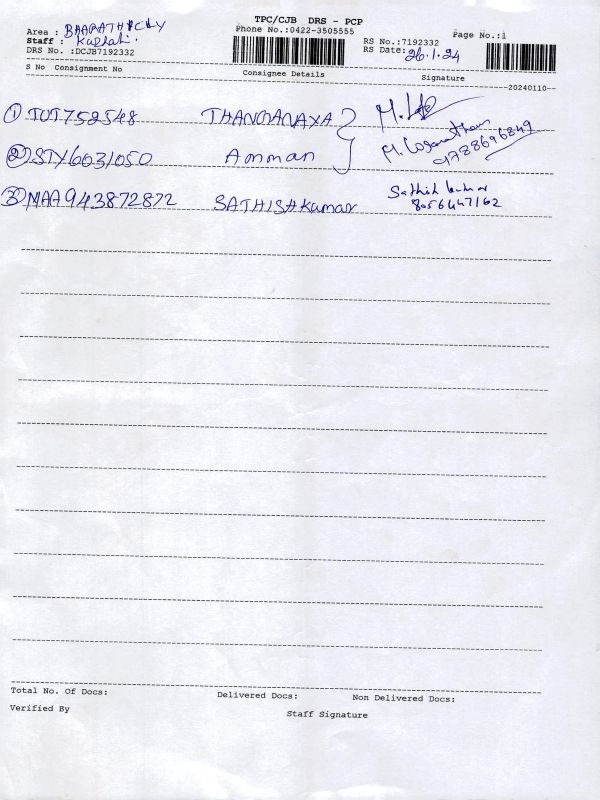 TPC/CJB DRS - PCP
Area : BAARATHPCLY
Phone No.:0422-3505555
Page No.:1
Staff :
RS No.:7192332
DRS No. :DCJB7192332
RS Date: 26.1.24
S No Consignment No
Consignee Details
Signature
20240110
① TUT752548 THANGANAYA
② STY6031050 Amman M. Loganathan
9788696849
③ MAA943872872 SATHISHKumar Sathish kumar
8056447162
Total No. Of Docs: Delivered Docs: Non Delivered Docs:
Verified By
Staff Signature